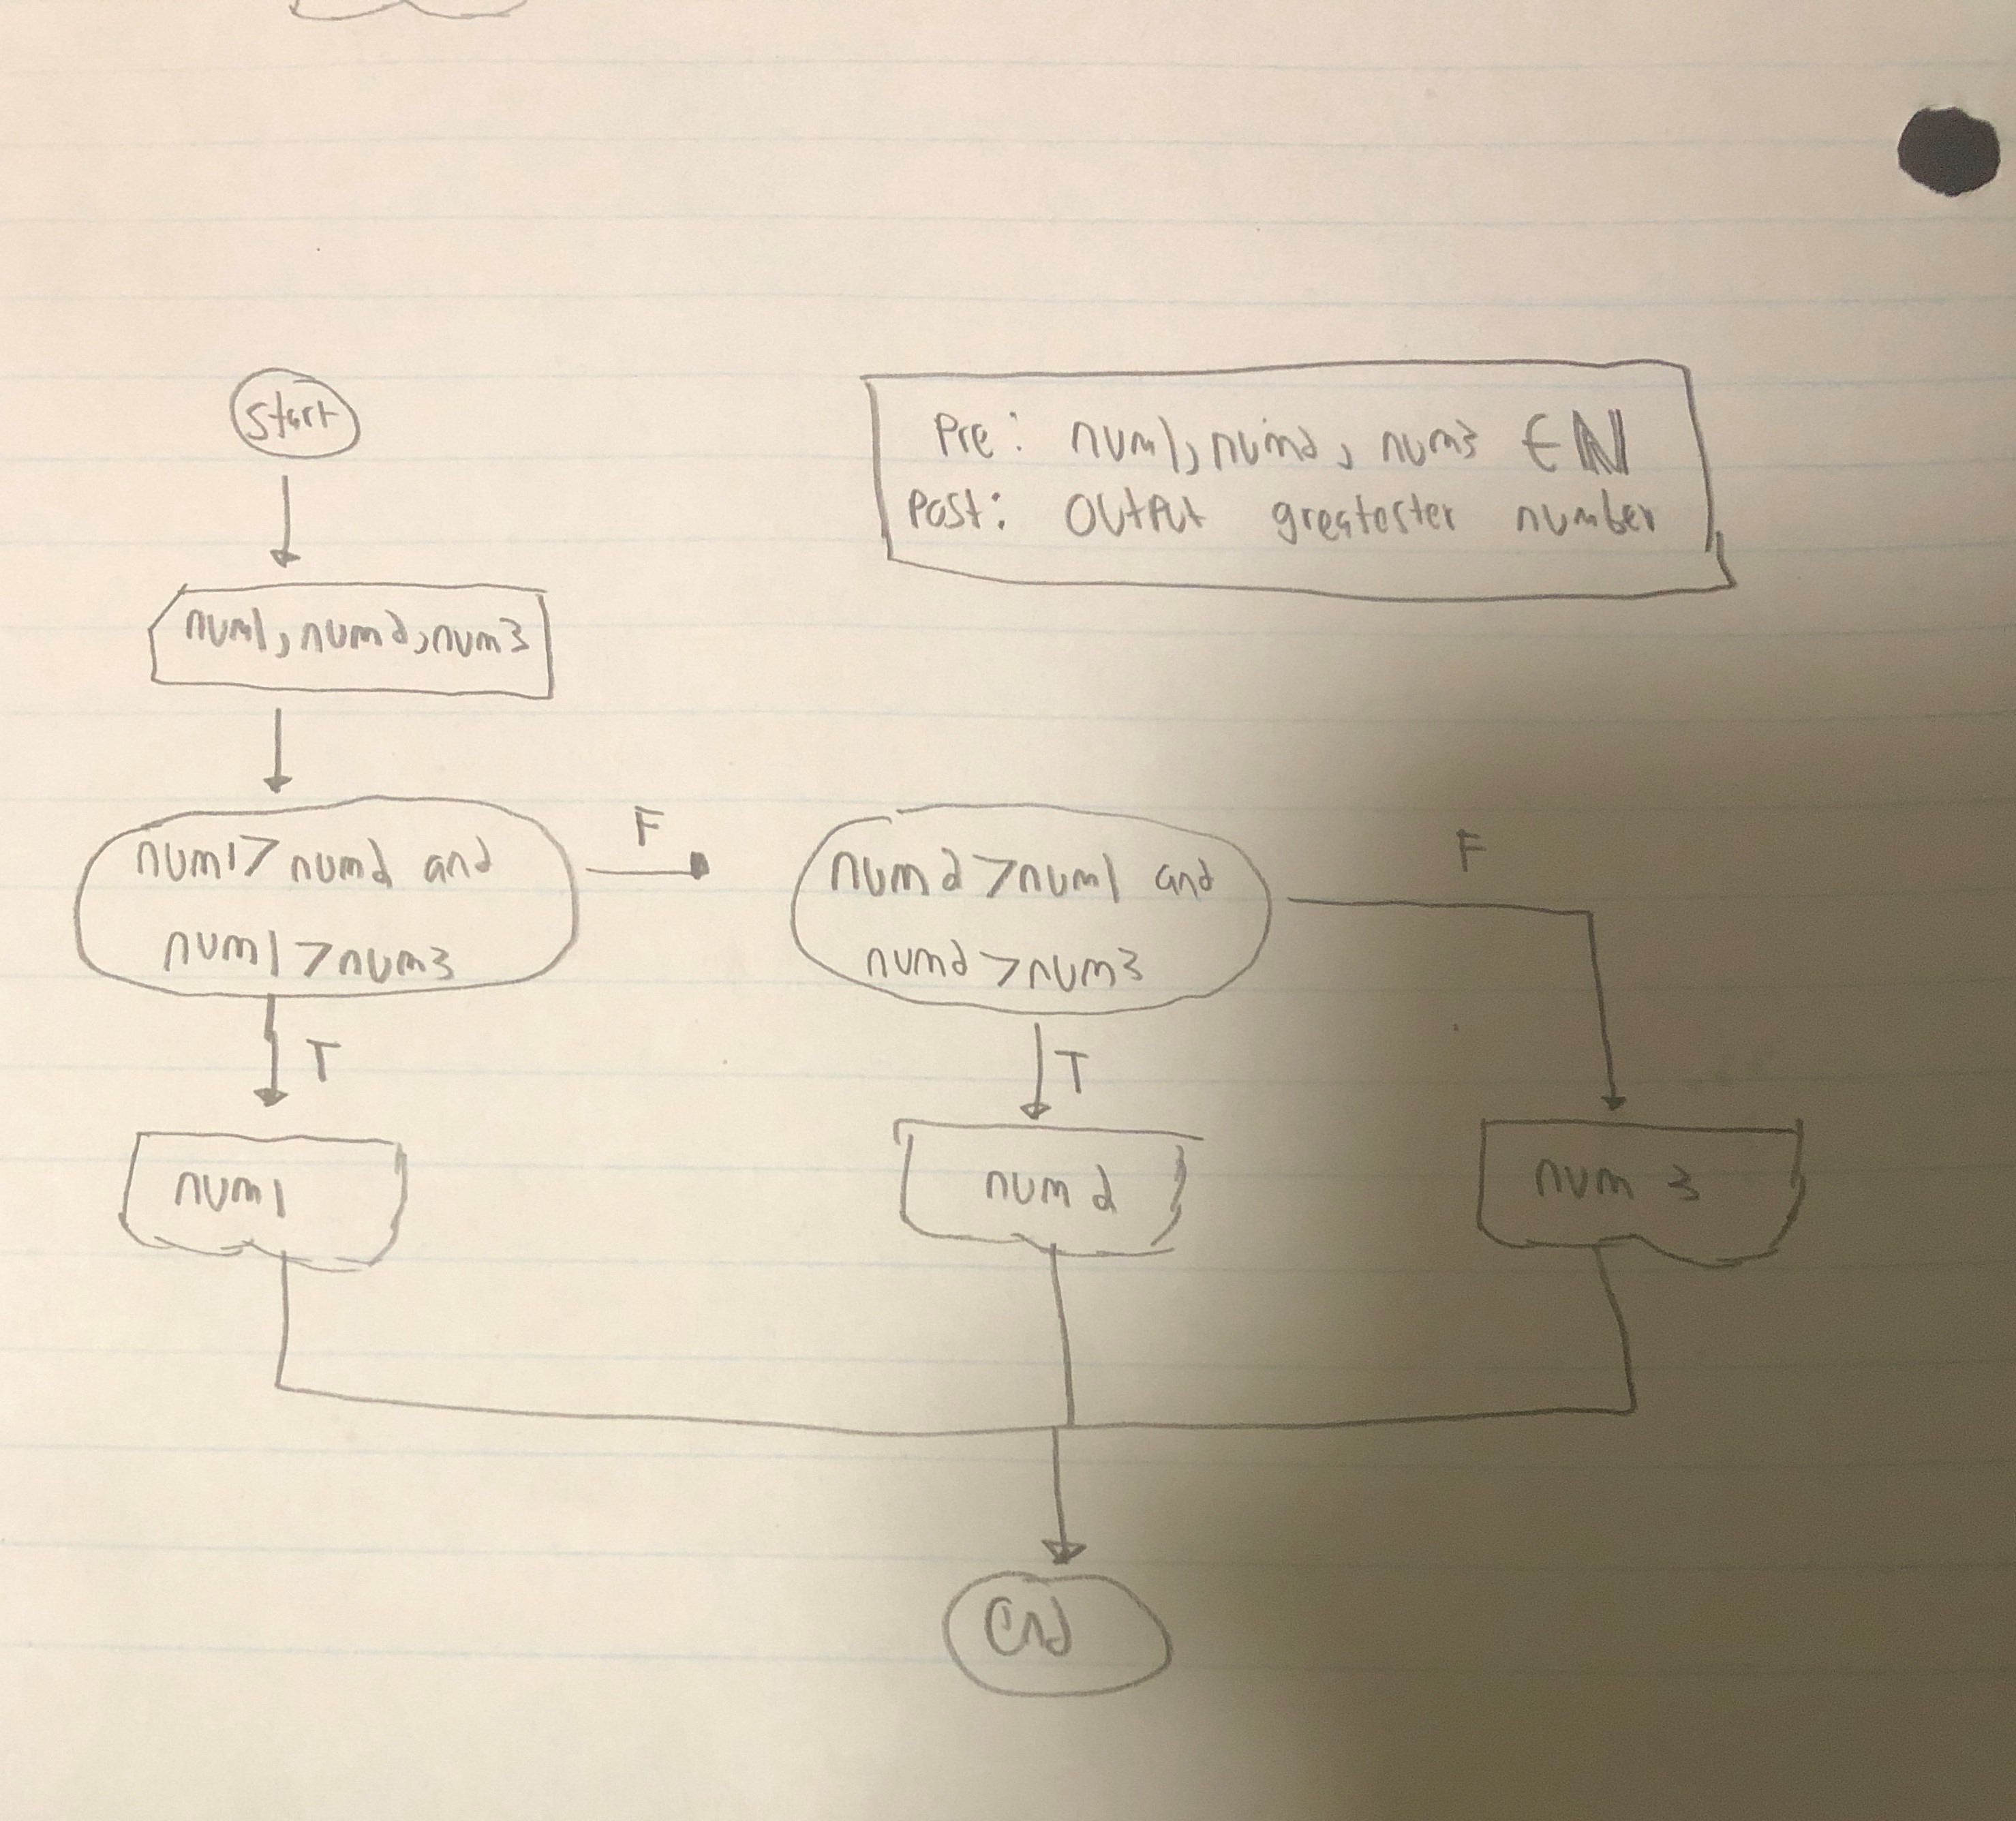 Start
Pre: num1, num2, num3 ∈ ℕ
Post: Output greatester number
num1, num2, num3
num1 > num2 and
num1 > num3
F
num2 > num1 and
num2 > num3
F
T
T
num1
num2
num 3
End